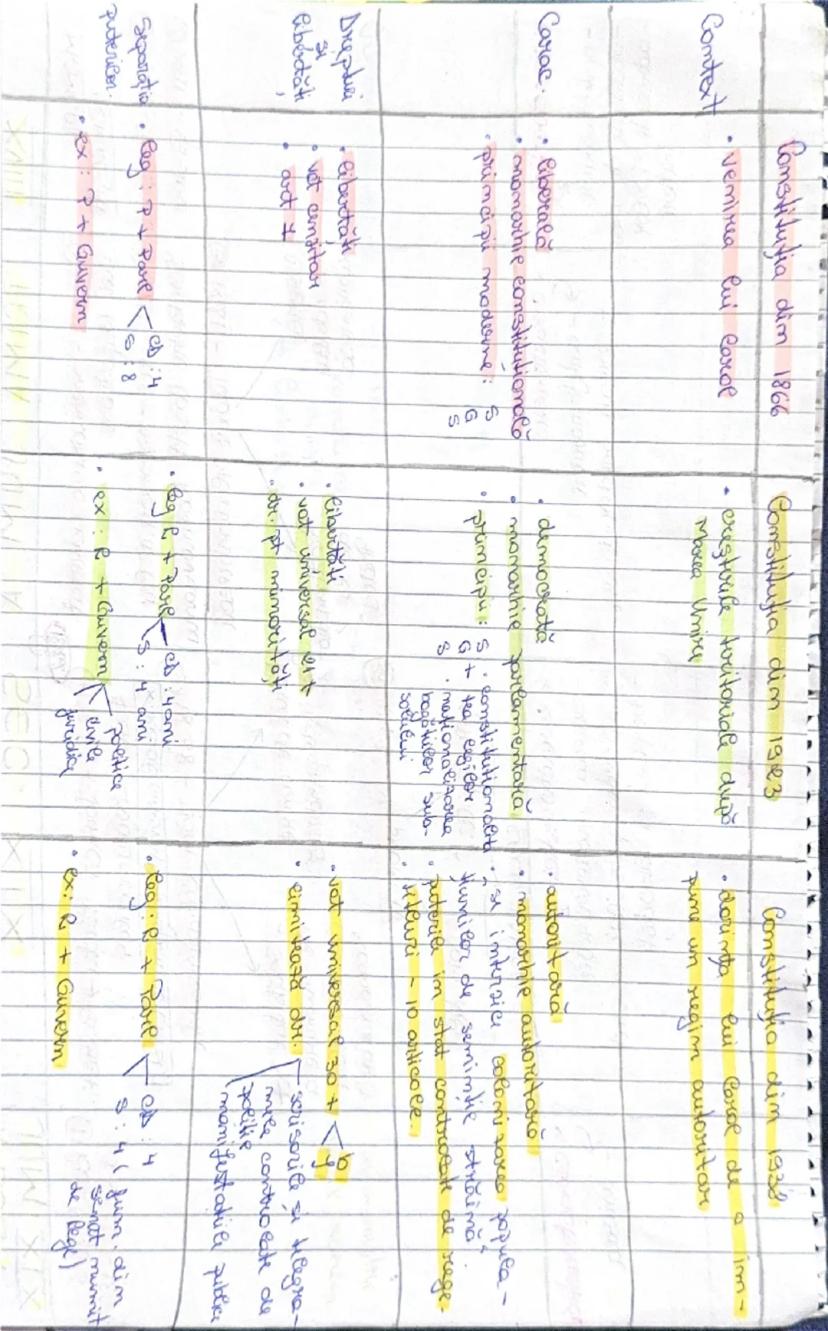 Constituția din 1866
Constituția din 1923
Constituția din 1938
Context
• venirea lui Carol
• creșterile teritoriale după
Marea Unire
• dorința lui Carol de a im-
pune un regim autoritar
Carac.
• liberală
• monarhie constituțională
• principii moderne: S
G
S
• democrată
• monarhie parlamentară
• principii: S
G +
S
• constituționalita
tea legilor
• naționalizarea
bogățiilor sub-
solului
• autoritară
• monarhie autoritară
• și interzice colonizarea popula-
țiunilor de seminție străină
• puterile în stat controlate de rege
– 10 articole.
Drepturi
și
libertăți
• libertăți
• vot cenzitar
• art 7
• libertăți
• vot universal 21+
• dr. pt minorități
• vot universal 30+ < b
f
• limitează dr.
scrisorile și telegra-
mele controlate de
poliție
manifestațiile publice
Separația
puterilor
• leg: P + Parl < CD: 4
S: 8
• ex: P + Guvern
• leg R + Parl < CD: 4 ani
S: 4 ani
• ex: R + Guvern
politice
civile
juridice
• leg: R + Parl < CD: 4
S: 4 (jum. din
senat numit
de rege)
• ex: R + Guvern